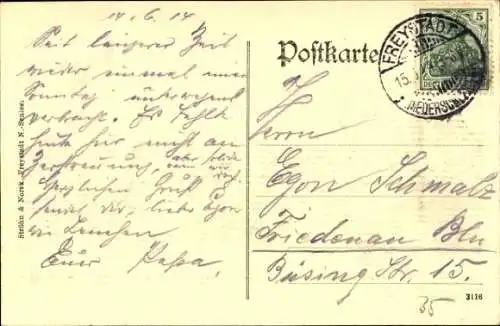 14.6.14
Seit längerer Zeit
wieder einmal einen
Sonntag unterwegs
verbracht. Es fehlte
heute hier nicht an
Zerstreuung, aber solide
Herzlichen Gruß
sendet dir, liebe Egon
Euer Papa,
Postkarte
FREYSTADT
15.
NIEDERSCHL.
5
Herrn
Egon Schmalz
Friedenau Bln
Büsing Str. 15.
35
3116
Freystadt N.-Schles.